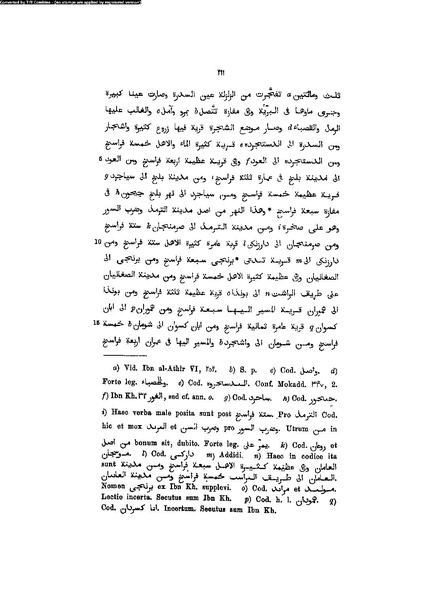 Converted by Tiff Combine - (no stamps are applied by registered version)
٢١١
ثلث ومائتين a تفجّرت من الزلزلة عين السدرة وصارت عينا كبيرة
وجرى ماوها فى البرّيّة وفى مفازة تتّصل b بمرو وآمل c والغالب عليها
الرمل والقصباء d وصار موضع الشجرة قرية فيها زروع كثيرة واشجار
ومن السدرة الى الدستجرد e قرية كثيرة الماء والاهل خمسة فراسخ
ومن الدستجرد الى العود f وفى قرية عظيمة اربعة فراسخ ومن العود 5
الى مدينة بلخ فى عمارة ثلثة فراسخ، ومن مدينة بلخ الى سياجرد g
قرية عظيمة خمسة فراسخ ومن سياجرد الى نهر بلخ جيحون h
مفازة سبعة فراسخ * وهذا النهر من اصل مدينة الترمذ وضرب السور
وهو على صخرة i ومن مدينة الترمذ الى صرمنجان k ستة فراسخ
ومن صرمنجان الى دارزنكى l قرية عامرة كثيرة الاهل ستة فراسخ ومن 10
دارزنكى الى m قرية تسمى * برنجى سبعة فراسخ ومن برنجى الى
الصغانيان وفى عظيمة كثيرة الاهل خمسة فراسخ ومن مدينة الصغانيان
على طريف الراشت n الى بوندا o قرية عظيمة ثلثة فراسخ ومن بوندا
الى همواران قرية المسير اليها سبعة فراسخ ومن همواران p الى ابان
كسوان q قرية عامرة ثمانية فراسخ ومن ابان كسوان الى شومان خمسة 15
فراسخ ومن شومان الى واشجردة والمسير اليها فى عمران اربعة فراسخ
a) Vid. Ibn al-Athir VI, ٢٥٢. b) S. p. c) Cod. واصل. d)
Forte leg. والحصباء. e) Cod. الدستجرد. Conf. Mokadd. ٣٤٧, 2.
f) Ibn Kh. ٣٢ الغور, sed cf. ann. o. g) Cod. ساجرد. h) Cod.
i) Haec verba male posita sunt post ستة فراسخ. Pro الترمذ Cod.
hic et mox العرمد et وضرب السور pro وضرب انسن. Utrum من
من اصل bonum sit, dubito. Forte leg. يمرّ على. k) Cod. et
l) Cod. داركسى m) Addidi. n) Haec in codice ita
sunt العامان وفى عظيمة كثيرة الاهل سبعة فراسخ ومن مدينة
العامان الى طريف الراست خمسة فراسخ ومن مدينة
Nomen برنجى ex Ibn Kh. supplevi. o) Cod. مراند et
Lectio incerta. Secutus sum Ibn Kh. p) Cod. h. l. q)
Cod. انا كسردان. Incertum. Secutus sum Ibn Kh.